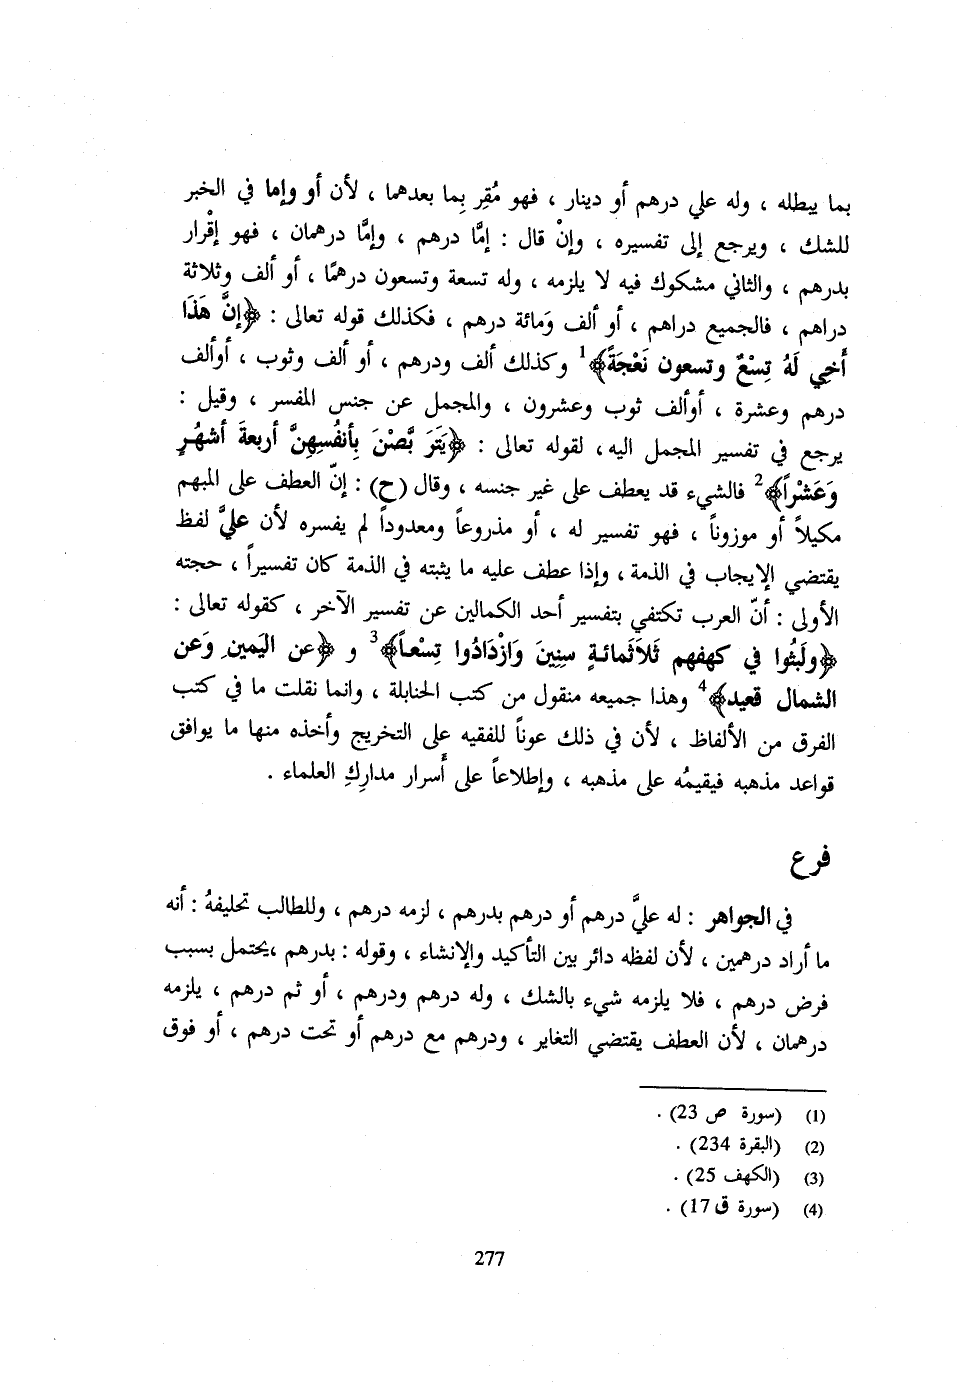 بما يبطله ، وله علي درهم أو دينار ، فهو مُقِر بِما بعدهما ، لأن أو وإما في الخبر
للشك ، ويرجع إلى تفسيره ، وإنْ قال : إمَّا درهم ، وإمَّا درهمان ، فهو إقْرار
بدرهم ، والثاني مشكوك فيه لا يلزمه ، وله تسعة وتسعون درهمًا ، أو ألف وثلاثة
دراهم ، فالجميع دراهم ، أو ألف وَمائة درهم ، فكذلك قوله تعالى : ﴿إنَّ هَذَا
أَخِي لَهُ تِسْعٌ وتسعون نَعْجَةً﴾1 وكذلك ألف ودرهم ، أو ألف وثوب ، أوألف
درهم وعشرة ، أوألف ثوب وعشرون ، والمجمل عن جنس المفسر ، وقيل :
يرجع في تفسير المجمل اليه، لقوله تعالى : ﴿يَتَرَ بَّصْنَ بِأنفُسِهِنَّ أربعةَ أشهُـرٍ
وَعَشْراً﴾2 فالشيء قد يعطف على غير جنسه ، وقال (ح) : إنّ العطف على المبهم
مكيلاً أو موزوناً ، فهو تفسير له ، أو مذروعاً ومعدوداً لم يفسره لأن عليَّ لفظ
يقتضي الإيجاب في الذمة ، وإذا عطف عليه ما يثبته في الذمة كان تفسيراً ، حجته
الأولى : أنّ العرب تكتفي بتفسير أحد الكمالين عن تفسير الآخر ، كقوله تعالى :
﴿ولَبثُوا في كهفهم ثَلاَثمائـةٍ سنِينَ وَازْدَادُوا تِسْعـاً﴾3 و ﴿عن اليَمينِ وَعن
الشمال قعيد﴾4 وهذا جميعه منقول من كتب الحنابلة ، وانما نقلت ما في كتب
الفرق من الألفاظ ، لأن في ذلك عوناً للفقيه على التخريج وأخذه منها ما يوافق
قواعد مذهبه فيقيمُه على مذهبه ، وإطلاعاً على أَسرار مدارِكِ العلماء .
فرع
في الجواهر : له عليَّ درهم أو درهم بدرهم ، لزمه درهم ، وللطالب تحليفهُ : أنه
ما أراد درهمين ، لأن لفظه دائر بين التأكيد والإنشاء ، وقوله : بدرهم ،يحتمل بسبب
فرض درهم ، فلا يلزمه شيء بالشك ، وله درهم ودرهم ، أو ثم درهم ، يلزمه
درهمان ، لأن العطف يقتضي التغاير ، ودرهم مع درهم أو تحت درهم ، أو فوق
(1) (سورة ص 23) .
(2) (البقرة 234) .
(3) (الكهف 25) .
(4) (سورة ق 17) .
277